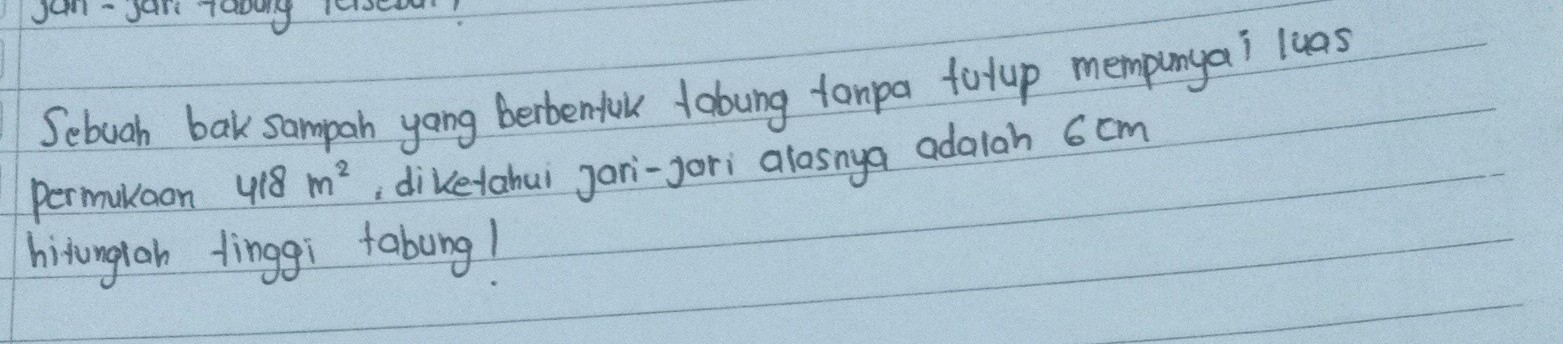 jari - jari tabung tersebut!
Sebuah bak sampah yang berbentuk tabung tanpa tutup mempunyai luas
permukaan 418 m², diketahui jari-jari alasnya adalah 6 cm
hitunglah tinggi tabung!